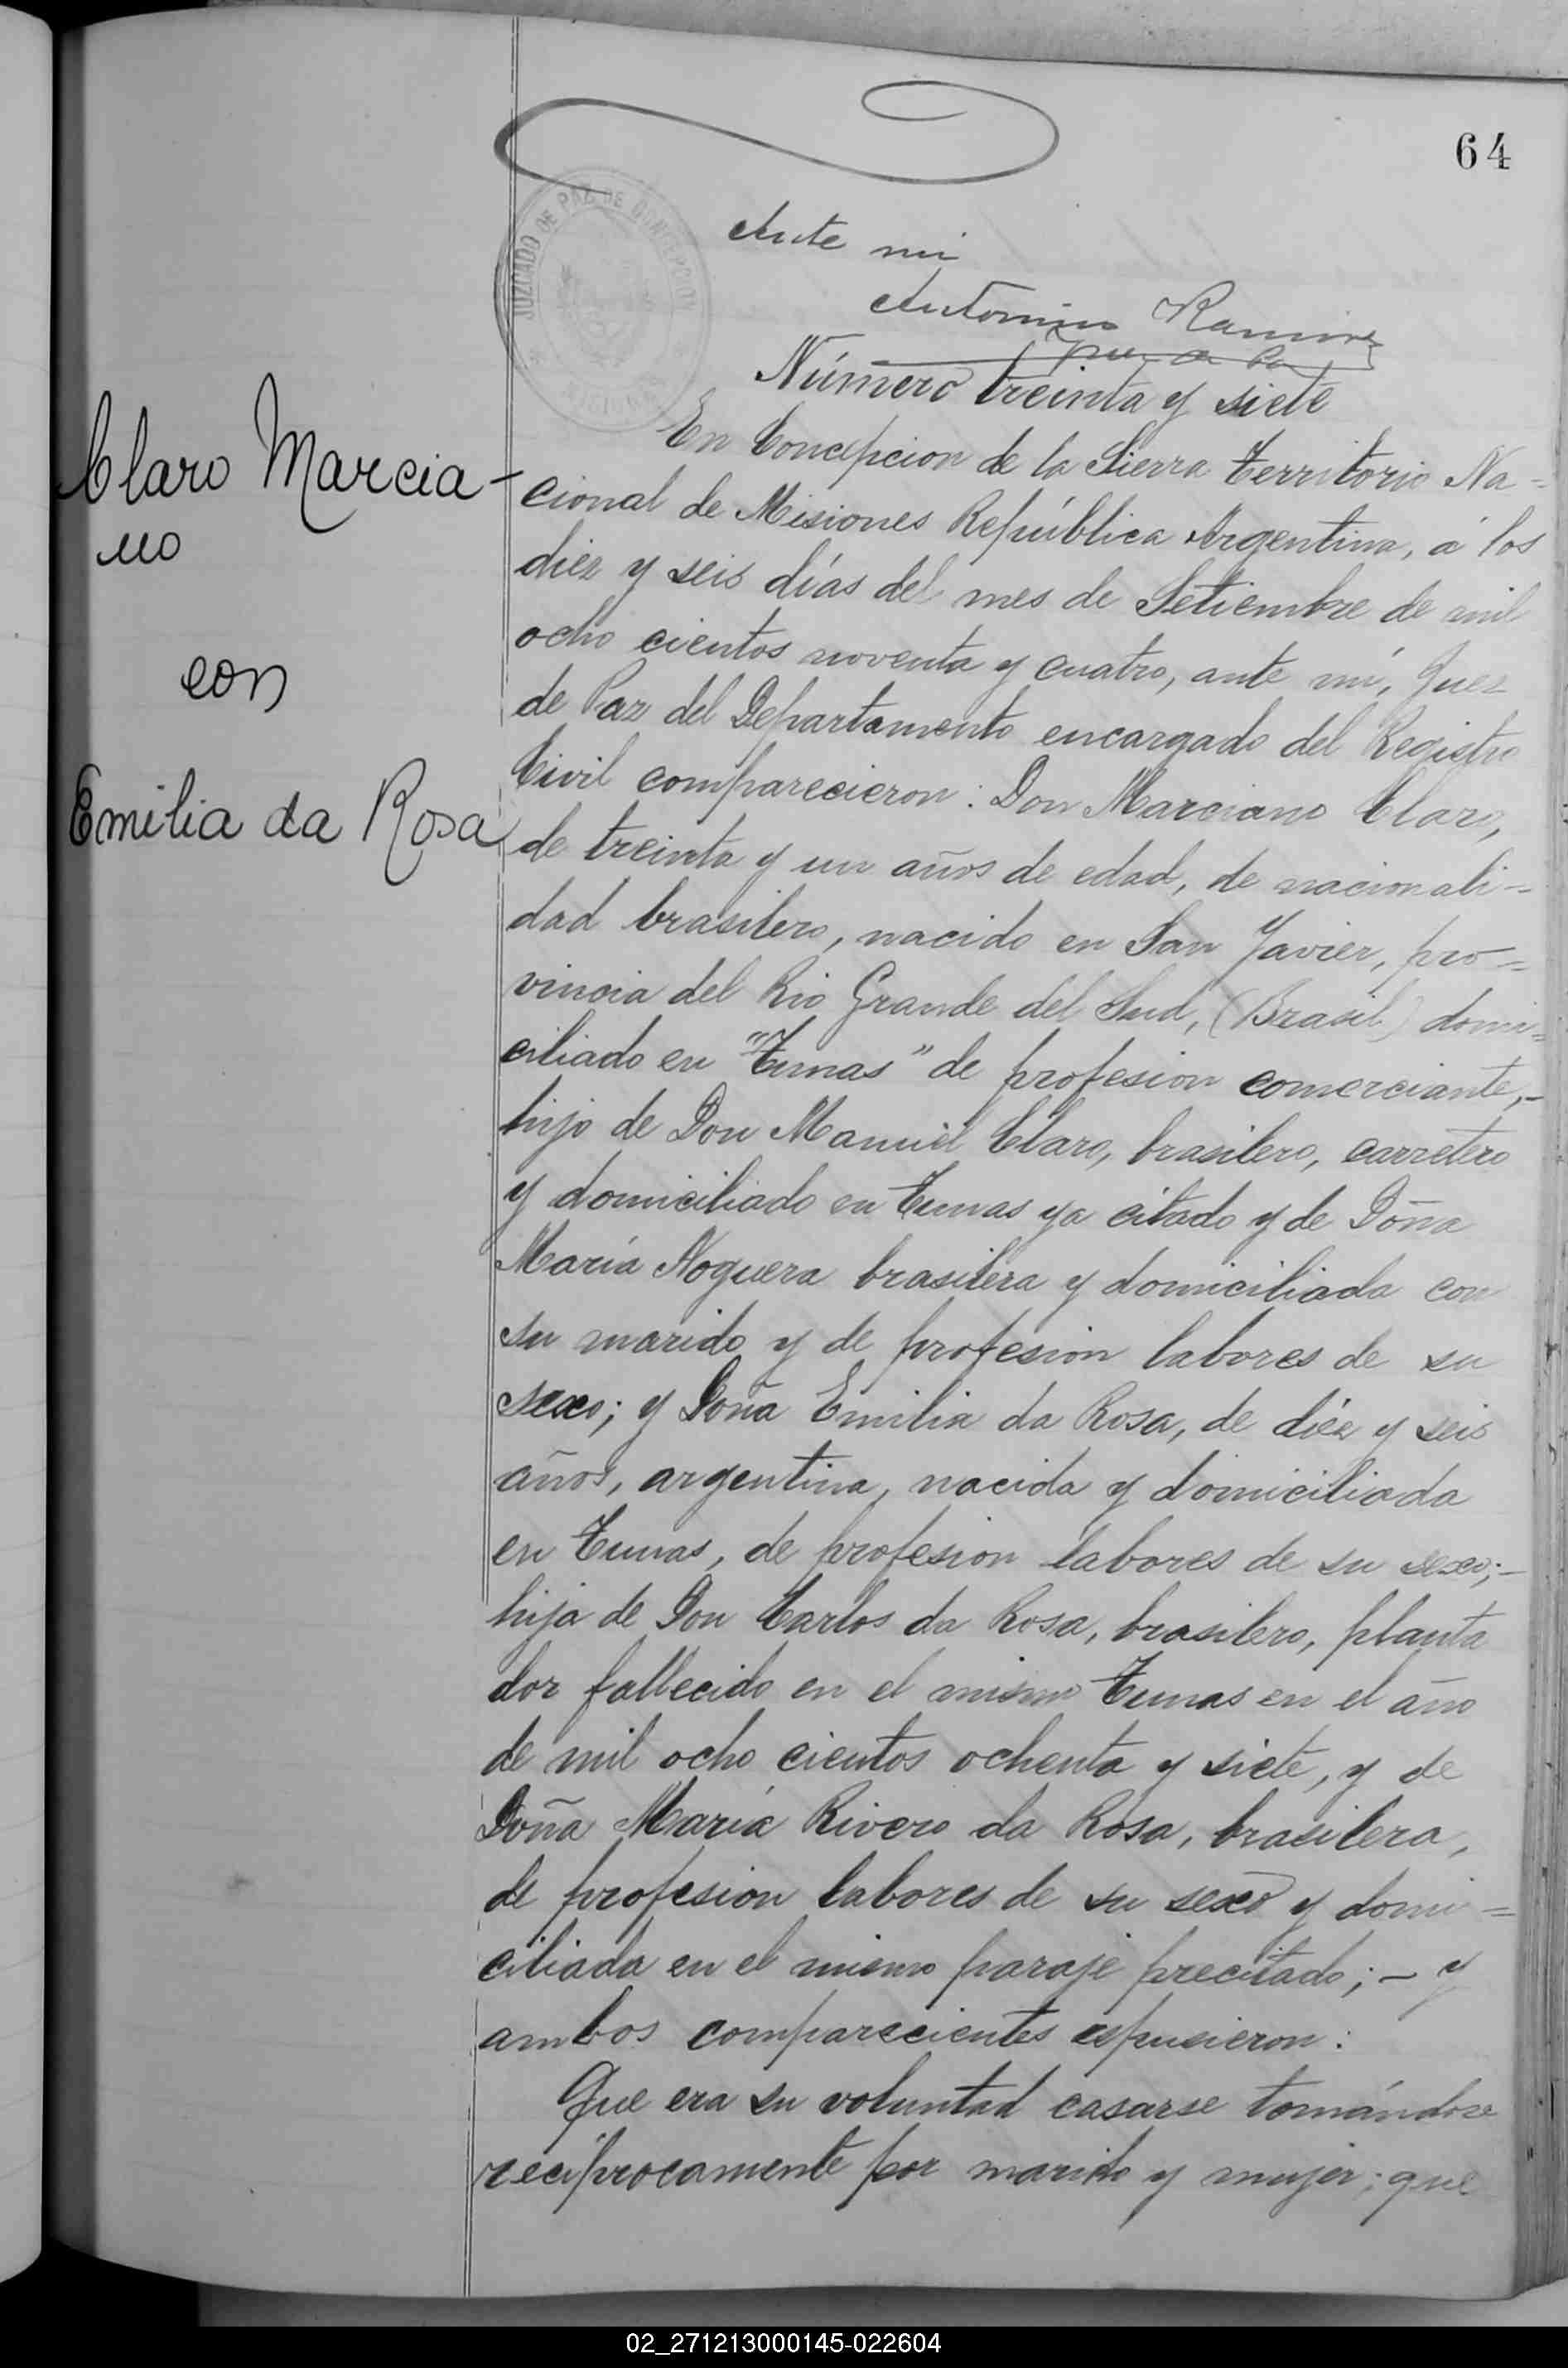 64
JUZGADO DE PAZ DE CONCEPCION
Ante mi
Antonino Ramirez
Juez de Paz
Número treinta y siete
Claro Marcia-
no
con
Emilia da Rosa
En Concepcion de la Sierra Territorio Na=
cional de Misiones República Argentina, á los
diez y seis días del mes de Setiembre de mil
ocho cientos noventa y cuatro, ante mí, Juez
de Paz del Departamento encargado del Registro
Civil comparecieron: Don Marciano Claro,
de treinta y un años de edad, de nacionali=
dad brasilero, nacido en San Javier, pro=
vincia del Rio Grande del Sud, (Brasil) domi=
ciliado en "Tunas" de profesion comerciante,-
hijo de Don Manuel Claro, brasilero, carretero
y domiciliado en Tunas ya citado y de Doña
María Noguera brasilera y domiciliada con
su marido y de profesion labores de su
sexo; y Doña Emilia da Rosa, de diéz y seis
años, argentina, nacida y domiciliada
en Tunas, de profesion labores de su sexo;-
hija de Don Carlos da Rosa, brasilero, planta
dor fallecido en el mismo Tunas en el año
de mil ocho cientos ochenta y siete, y de
Doña María Rivero da Rosa, brasilera,
de profesion labores de su sexo y domi=
ciliada en el mismo paraje precitado;- y
ambos comparecientes espusieron:
Que era su voluntad casarse tomándose
recíprocamente por marido y mujer; que
02_271213000145-022604